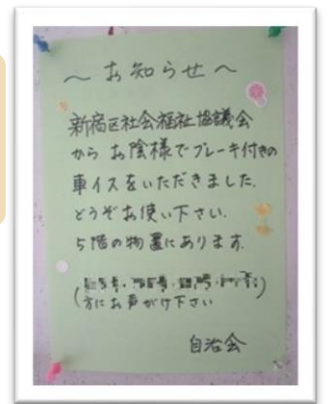 ～お知らせ～
新宿区社会福祉協議会
から お陰様でブレーキ付きの
車イスをいただきました.
どうぞお使い下さい.
5階の物置にあります.
方にお声がけ下さい
自治会